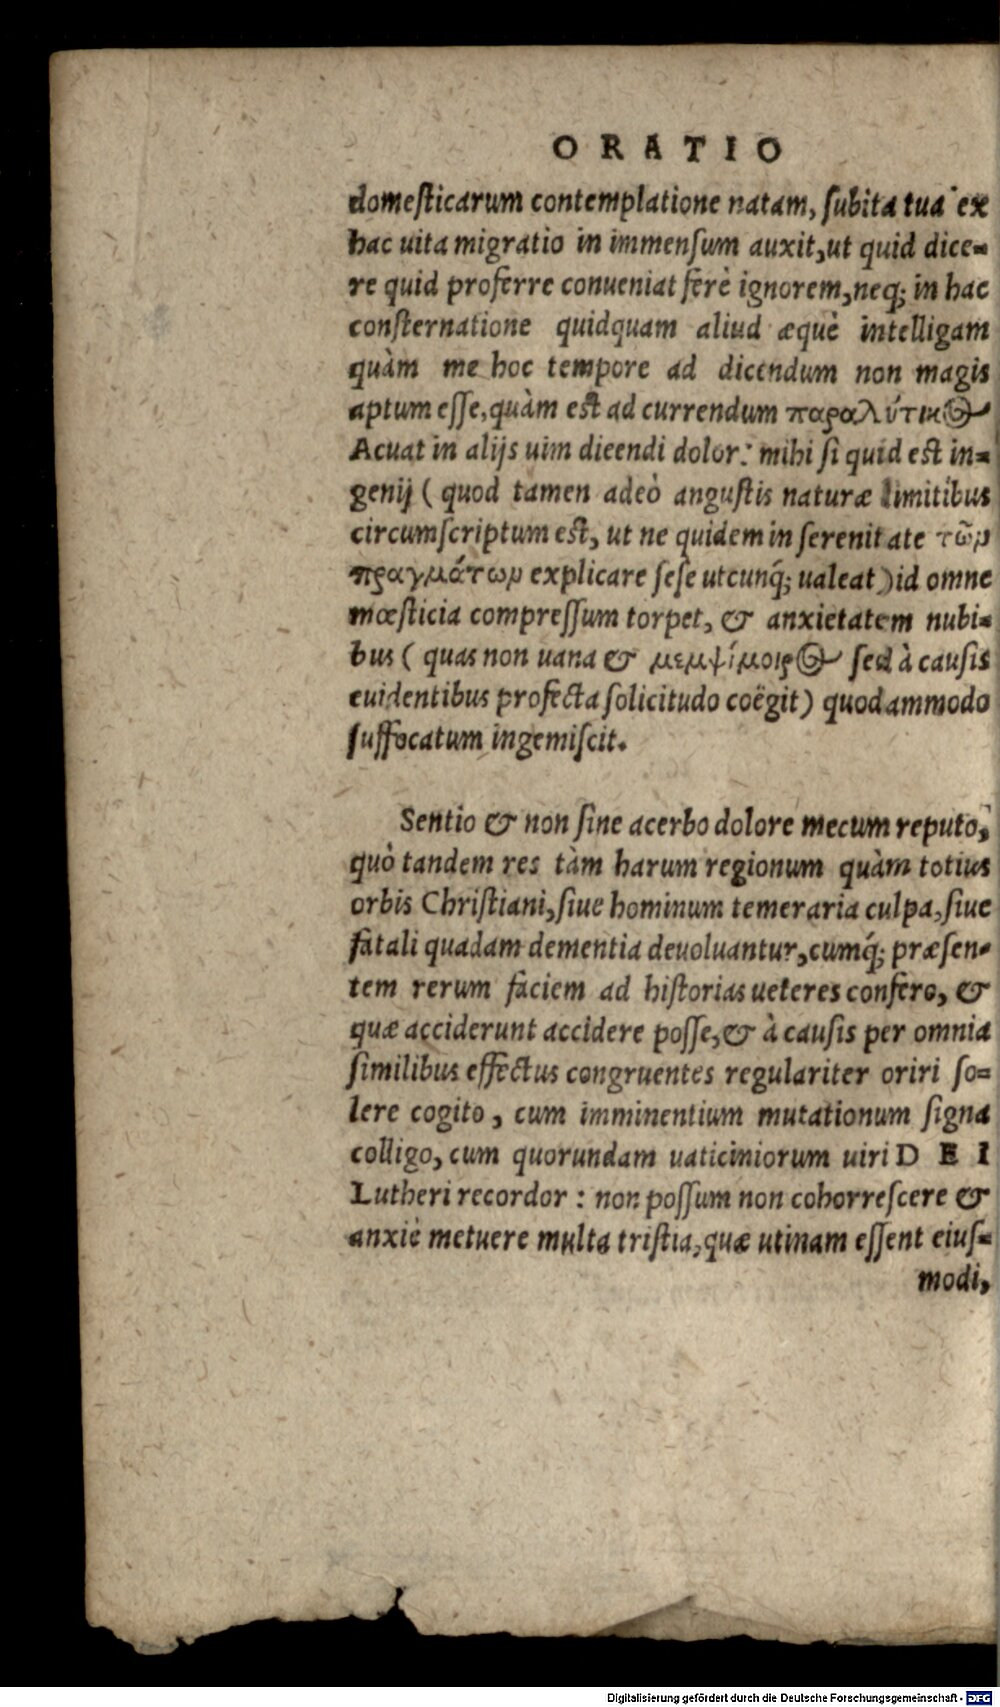 ORATIO
domeſticarum contemplatione natam, ſubita tua ex
hac uita migratio in immenſum auxit, ut quid dice=
re quid proferre conueniat ferè ignorem, neq; in hac
conſternatione quidquam aliud æquè intelligam
quàm me hoc tempore ad dicendum non magis
aptum eſſe, quàm eſt ad currendum παραλύτικος
Acuat in alijs uim dicendi dolor: mihi ſi quid eſt in=
genij (quod tamen adeò anguſtis naturæ limitibus
circumſcriptum eſt, ut ne quidem in ſerenitate τῶν
πραγμάτων explicare ſeſe utcunq́; ualeat) id omne
mœſticia compreſſum torpet, & anxietatem nubi=
bus (quas non uana & μεμψίμοιρος ſed à cauſis
euidentibus profecta ſolicitudo coëgit) quodammodo
ſuffocatum ingemiſcit.
Sentio & non ſine acerbo dolore mecum reputo,
quò tandem res tàm harum regionum quàm totius
orbis Chriſtiani, ſiue hominum temeraria culpa, ſiue
fatali quadam dementia deuoluantur, cumq́; præſen=
tem rerum faciem ad hiſtorias ueteres confero, &
quæ acciderunt accidere poſſe, & à cauſis per omnia
ſimilibus effectus congruentes regulariter oriri ſo=
lere cogito, cum imminentium mutationum ſigna
colligo, cum quorundam uaticiniorum uiri DEI
Lutheri recordor: non poſſum non cohorreſcere &
anxiè metuere multa triſtia, quæ utinam eſſent eiuſ=
modi,
Digitalisierung gefördert durch die Deutsche Forschungsgemeinschaft - DFG